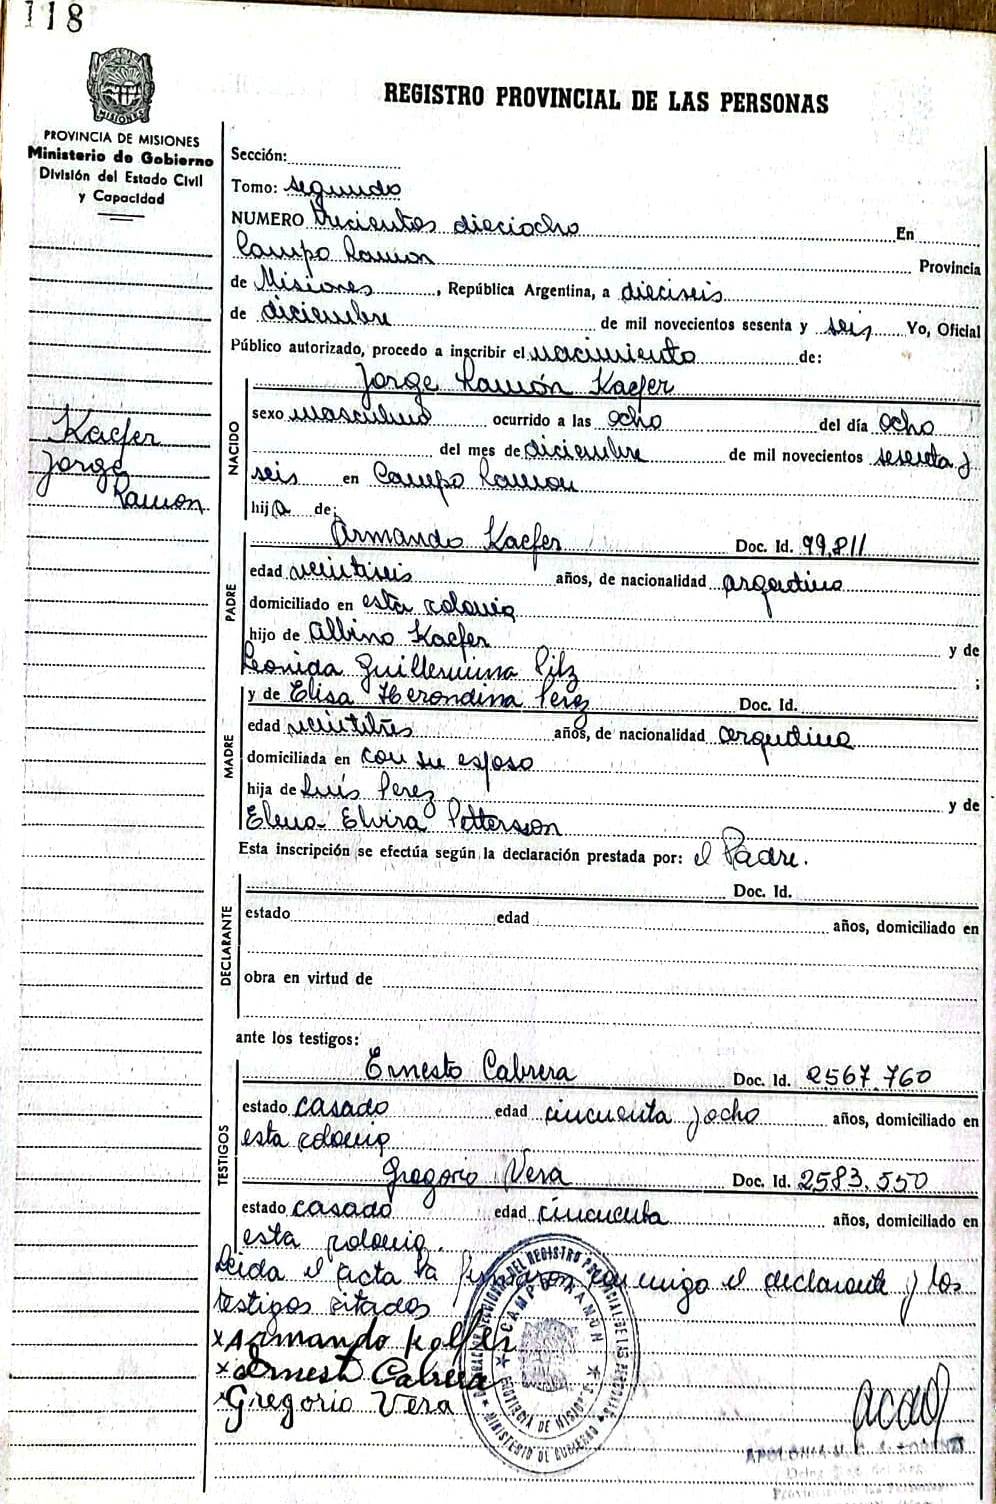 118
MISIONES
PROVINCIA DE MISIONES
Ministerio de Gobierno
División del Estado Civil
y Capacidad
REGISTRO PROVINCIAL DE LAS PERSONAS
Sección:
Tomo: segundo
NUMERO trecientos dieciocho En
Campo Ramon Provincia
de Misiones, República Argentina, a dieciseis
de diciembre de mil novecientos sesenta y seis Yo, Oficial
Público autorizado, procedo a inscribir el nacimiento de:
Kaefer
Jorge
Ramon
NACIDO
Jorge Ramón Kaefer
sexo masculino ocurrido a las ocho del día ocho
del mes de diciembre de mil novecientos sesenta y
seis en Campo Ramon
hijo de:
PADRE
Armando Kaefer Doc. Id. 99.811
edad veintiseis años, de nacionalidad argentina
domiciliado en esta colonia
hijo de Albino Kaefer y de
Leonida Guillermina Pilz ;
MADRE
y de Elisa Herondina Perez Doc. Id.
edad veintitres años, de nacionalidad argentina
domiciliada en con su esposo
hija de Luís Perez y de
Elena Elvira Pettersson
Esta inscripción se efectúa según la declaración prestada por: el Padre.
DECLARANTE
Doc. Id.
estado edad años, domiciliado en
obra en virtud de
ante los testigos:
TESTIGOS
Ernesto Cabrera Doc. Id. 2567.760
estado casado edad cincuenta y ocho años, domiciliado en
esta colonia
Gregorio Vera Doc. Id. 2583.550
estado casado edad cincuenta años, domiciliado en
esta colonia.
Leida el acta la firmaron conmigo el declarante y los
testigos citados
x Armando Kaefer
x Ernesto Cabrera
x Gregorio Vera
DEL REGISTRO PROVINCIAL DE LAS PERSONAS
CAMPO RAMON
PROVINCIA DE MISIONES
MINISTERIO DE GOBIERNO